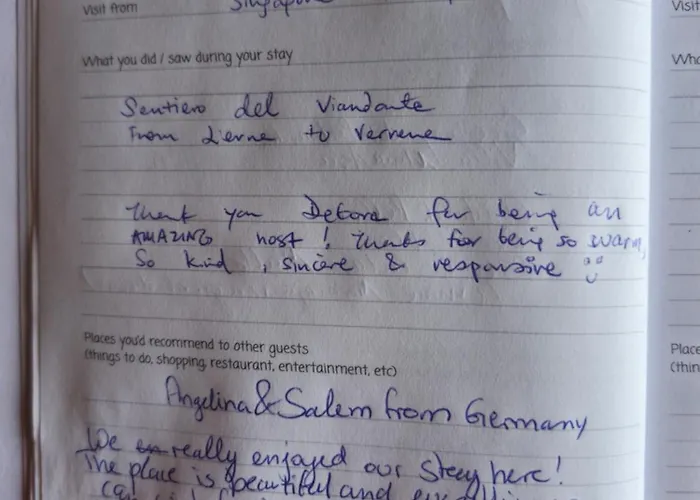 Visit from Singapore
What you did / saw during your stay
Sentiero del Viandante
From Lierna to Varenna
Thank you Debora for being an
AMAZING host! Thanks for being so warm,
So kind, sincere & responsive
Places you'd recommend to other guests
(things to do, shopping, restaurant, entertainment, etc)
Angelina & Salem from Germany
We really enjoyed our steey here!
The place is beautiful and
Visit
Place
(thin